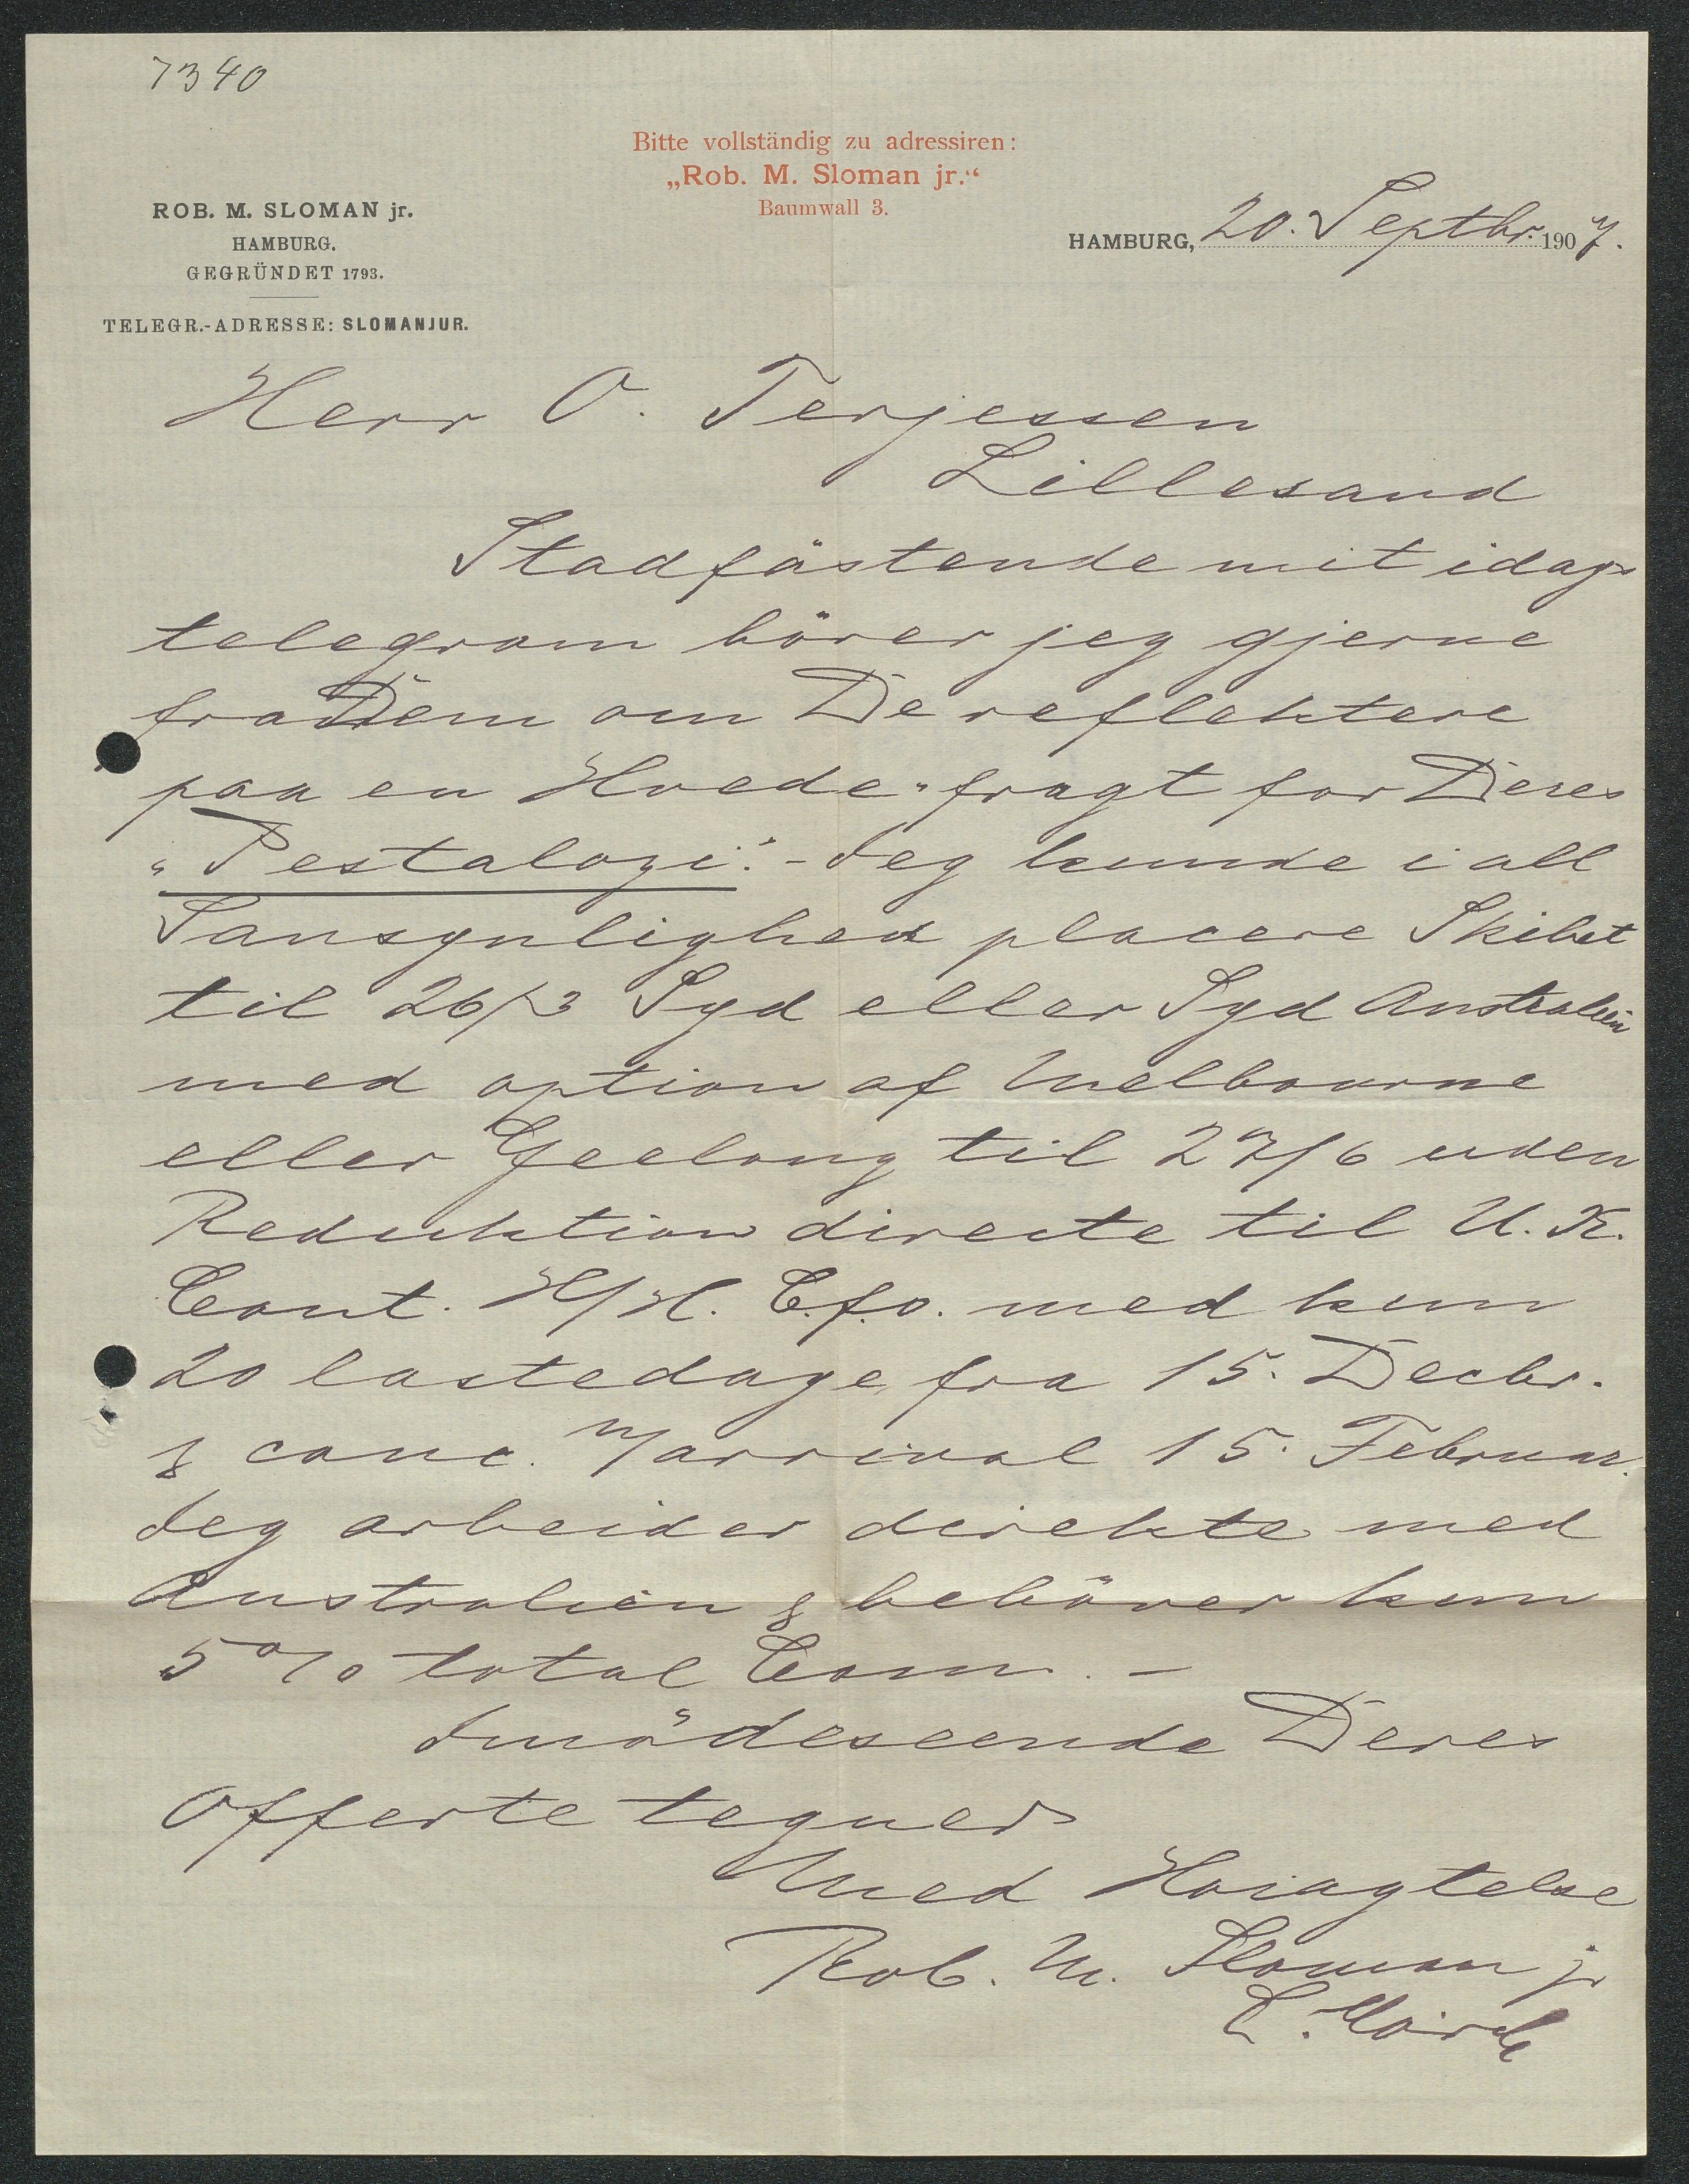 7340
Bitte vollständig zu adressiren:
„Rob. M. Sloman jr."
Baumwall 3.
ROB. M. SLOMAN jr.
HAMBURG.
GEGRÜNDET 1793.
TELEGR.-ADRESSE: SLOMANJUR.
HAMBURG, 20. Septbr. 1907.
Herr O. Terjessen
Lillesand
Stadfästende mit idags
telegram hörer jeg gjerne
fra Dem om De reflektere
paa en Hvede-fragt for Deres
„Pestalozi". - Jeg kunde i all
Sansynlighed placere Skibet
til 26/3 Syd eller Syd Australien
med option af Melbourne
eller Geelong til 27/6 uden
Reduktion directe til U. K.
Cont. H/H. C.f.o. med kun
20 lastedage fra 15. Decbr.
& canc. n/arrival 15. Februar.
Jeg arbeider direkte med
Australien & behöver kun
5 % total Com. -
Imödeseende Deres
Offerte tegner
Med Hoiagtelse
Rob. M. Sloman jr